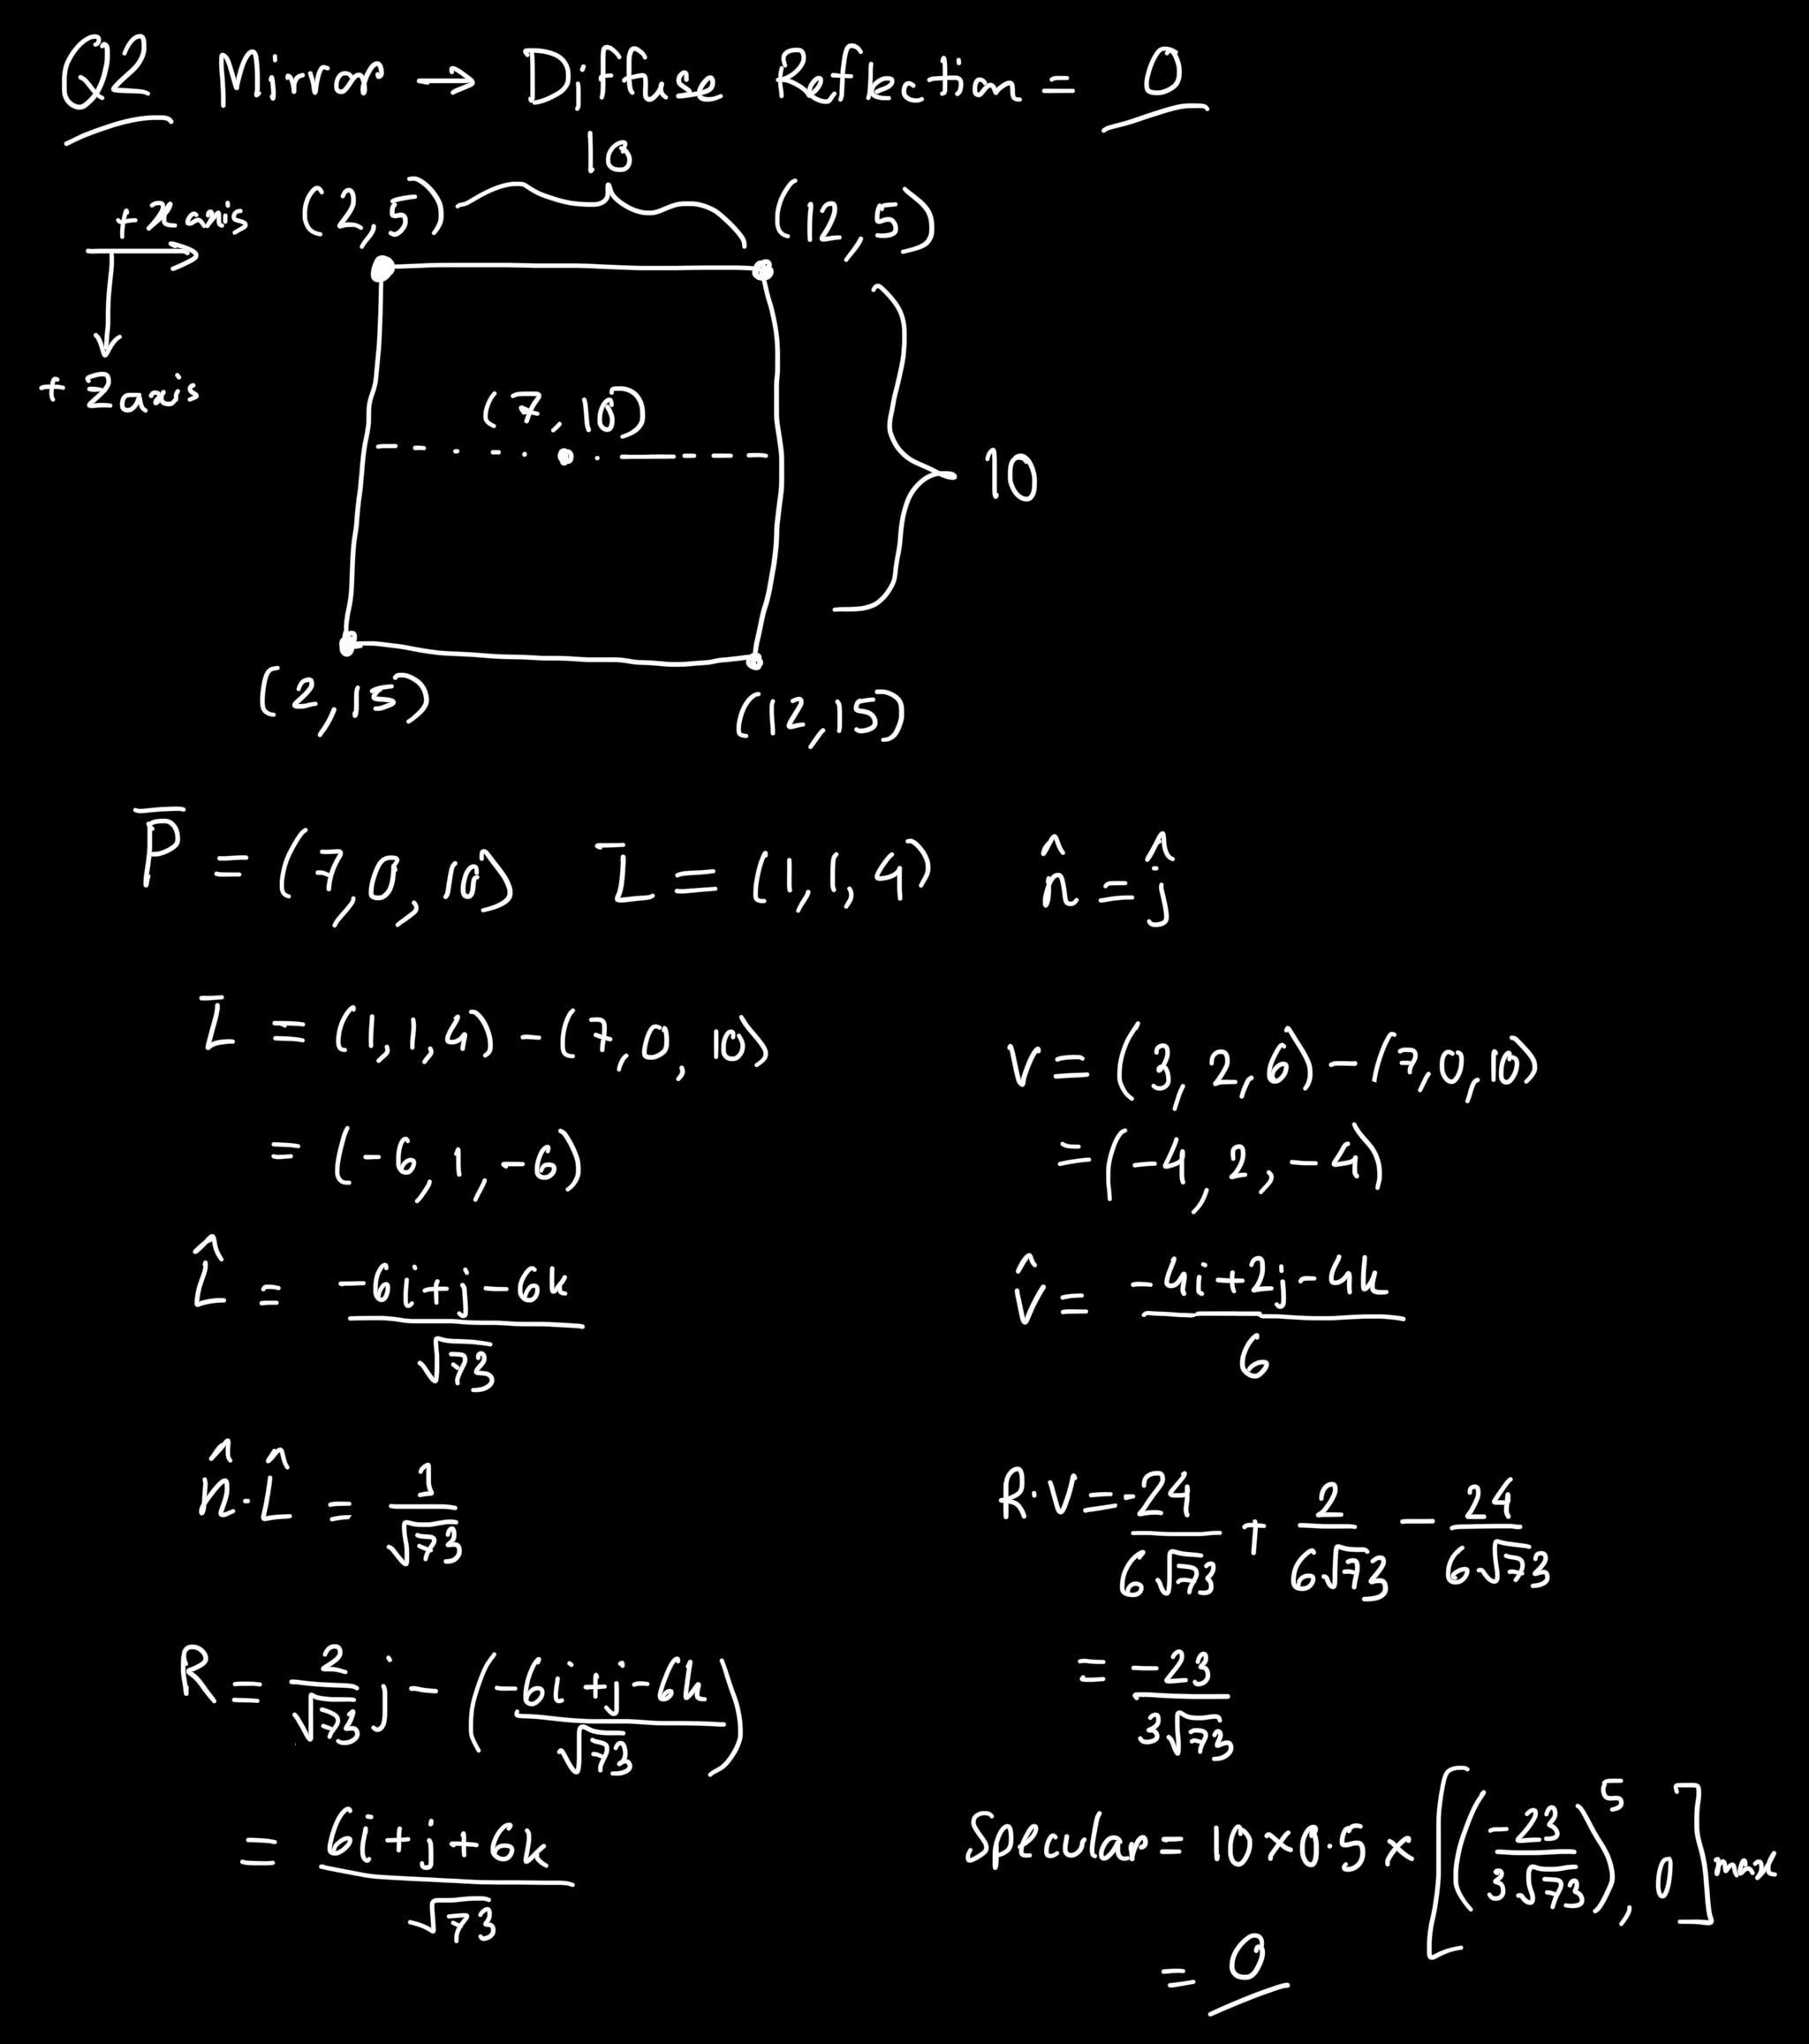 Q2 Mirror → Diffuse Reflection = 0
10
+ x axis (2,5) (12,5)
+ z axis
(7,10)
10
(2,15) (12,15)
P̅ = (7,0,10) L̅ = (1,1,4) n̂ = ĵ
L̅ = (1,1,4) - (7,0,10)
= (-6,1,-6)
L̂ = (-6i+j-6k)/√73
n̂·L̂ = 1/√73
R = 2/√73 j - ((-6i+j-6k)/√73)
= (6i+j+6k)/√73
V = (3,2,6) - (7,0,10)
= (-4,2,-4)
v̂ = (-4i+2j-4k)/6
R·V = -24/6√73 + 2/6√73 - 24/6√73
= -23/3√73
Specular = 10×0.5× [(-23/3√73)⁵, 0] max
= 0